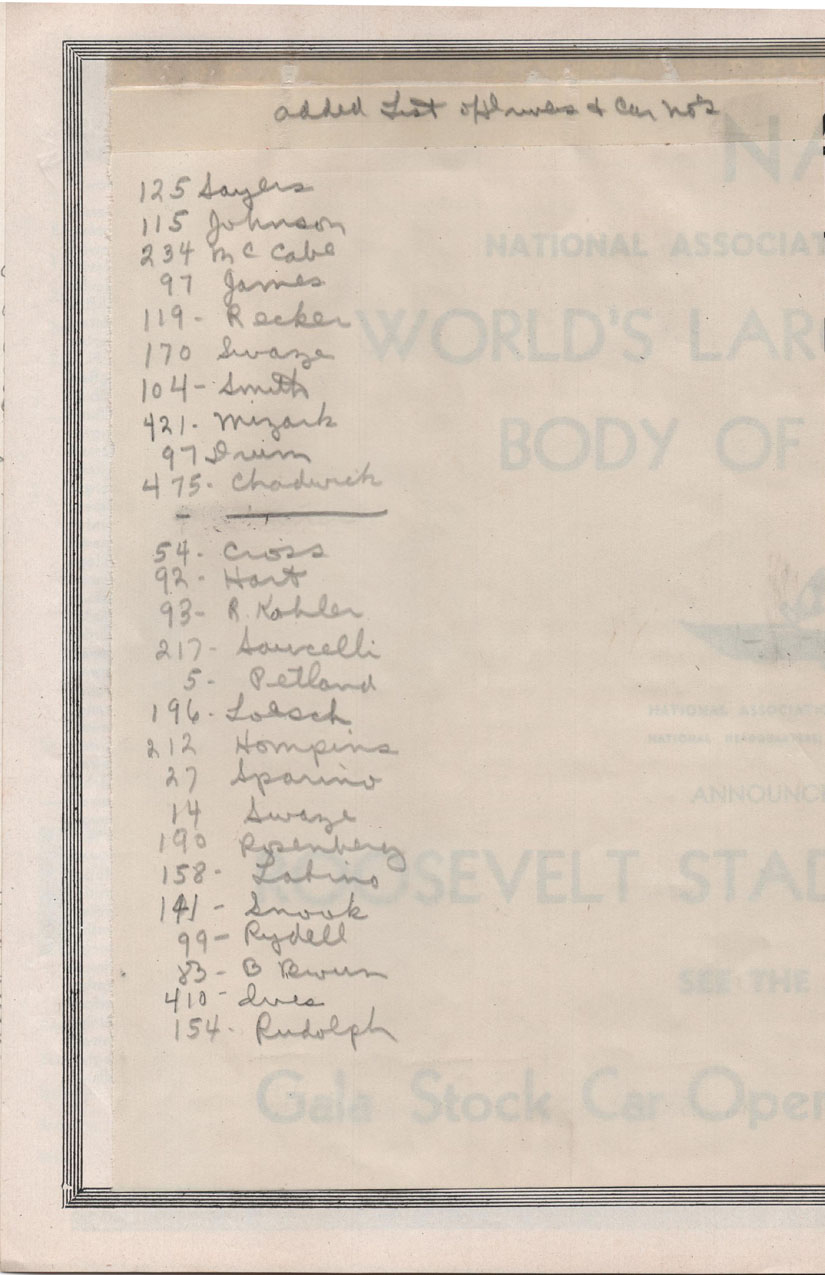 added List of Drivers & Car No's
NA
NATIONAL ASSOCIAT
125 Sayers
115 Johnson
234 Mc Cabe
97 James
119- Recker
WORLD'S LAR
170 Swaze
104- Smith
421- Mizark
BODY OF
97 Drum
475- Chadwick
54- Cross
92- Hart
93- R. Kohler
217-
5- Petland
196- Loesch
NATIONAL ASSOCIAT
212 Hompins
NATIONAL HEADQUARTERS
27 Sparino
ANNOUNC
14 Swaze
190 Rosenberg
158- Latino
ROOSEVELT STAD
141- Snook
99- Rydell
83- B
SEE THE
410- Ives
154- Rudolph
Gala Stock Car Oper